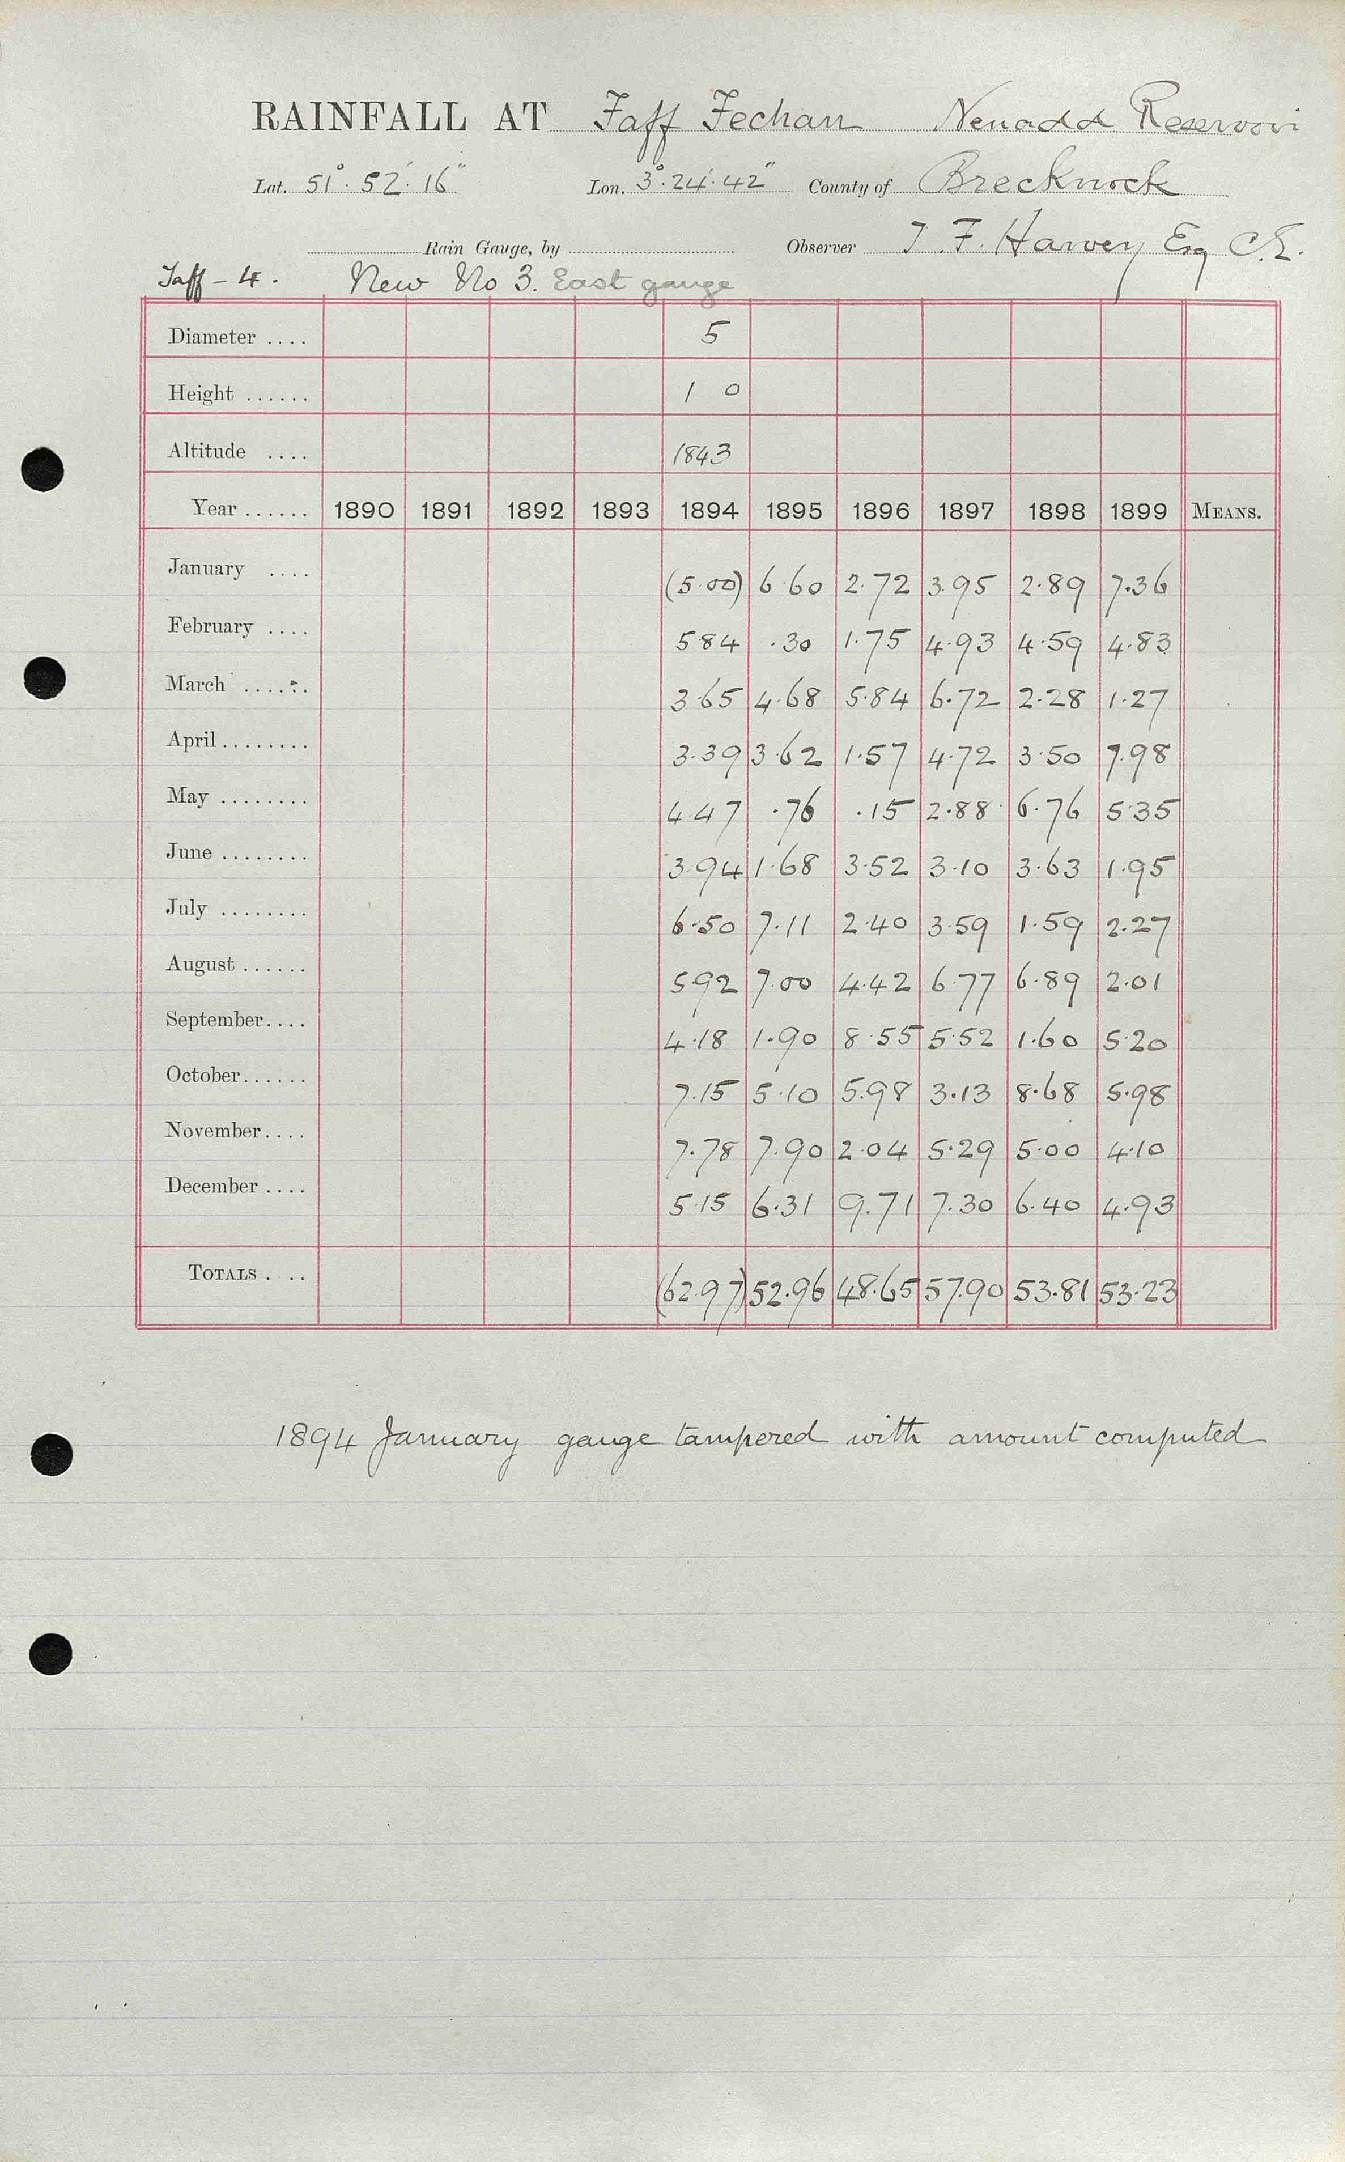 RAINFALL AT Taff Fechan Neuadd Reservoir
Lat. 51° 52' 16" Lon. 3° 24' 42" County of Brecknock
Rain Gauge, by Observer T. F. Harvey Esq C.E.
Taff - 4. New No 3. East gauge
Diameter .... 5
Height ...... 1 0
Altitude .... 1843
Year ...... 1890 1891 1892 1893 1894 1895 1896 1897 1898 1899 MEANS.
January .... (5.00) 6.60 2.72 3.95 2.89 7.36
February .... 5.84 .30 1.75 4.93 4.59 4.83
March ...... 3.65 4.68 5.84 6.72 2.28 1.27
April ........ 3.39 3.62 1.57 4.72 3.50 7.98
May ........ 4.47 .76 .15 2.88 6.76 5.35
June ........ 3.94 1.68 3.52 3.10 3.63 1.95
July ........ 6.50 7.11 2.40 3.59 1.59 2.27
August ...... 5.92 7.00 4.42 6.77 6.89 2.01
September.... 4.18 1.90 8.55 5.52 1.60 5.20
October...... 7.15 5.10 5.98 3.13 8.68 5.98
November.... 7.78 7.90 2.04 5.29 5.00 4.10
December .... 5.15 6.31 9.71 7.30 6.40 4.93
TOTALS . .. (62.97) 52.96 48.65 57.90 53.81 53.23
1894 January gauge tampered with amount computed